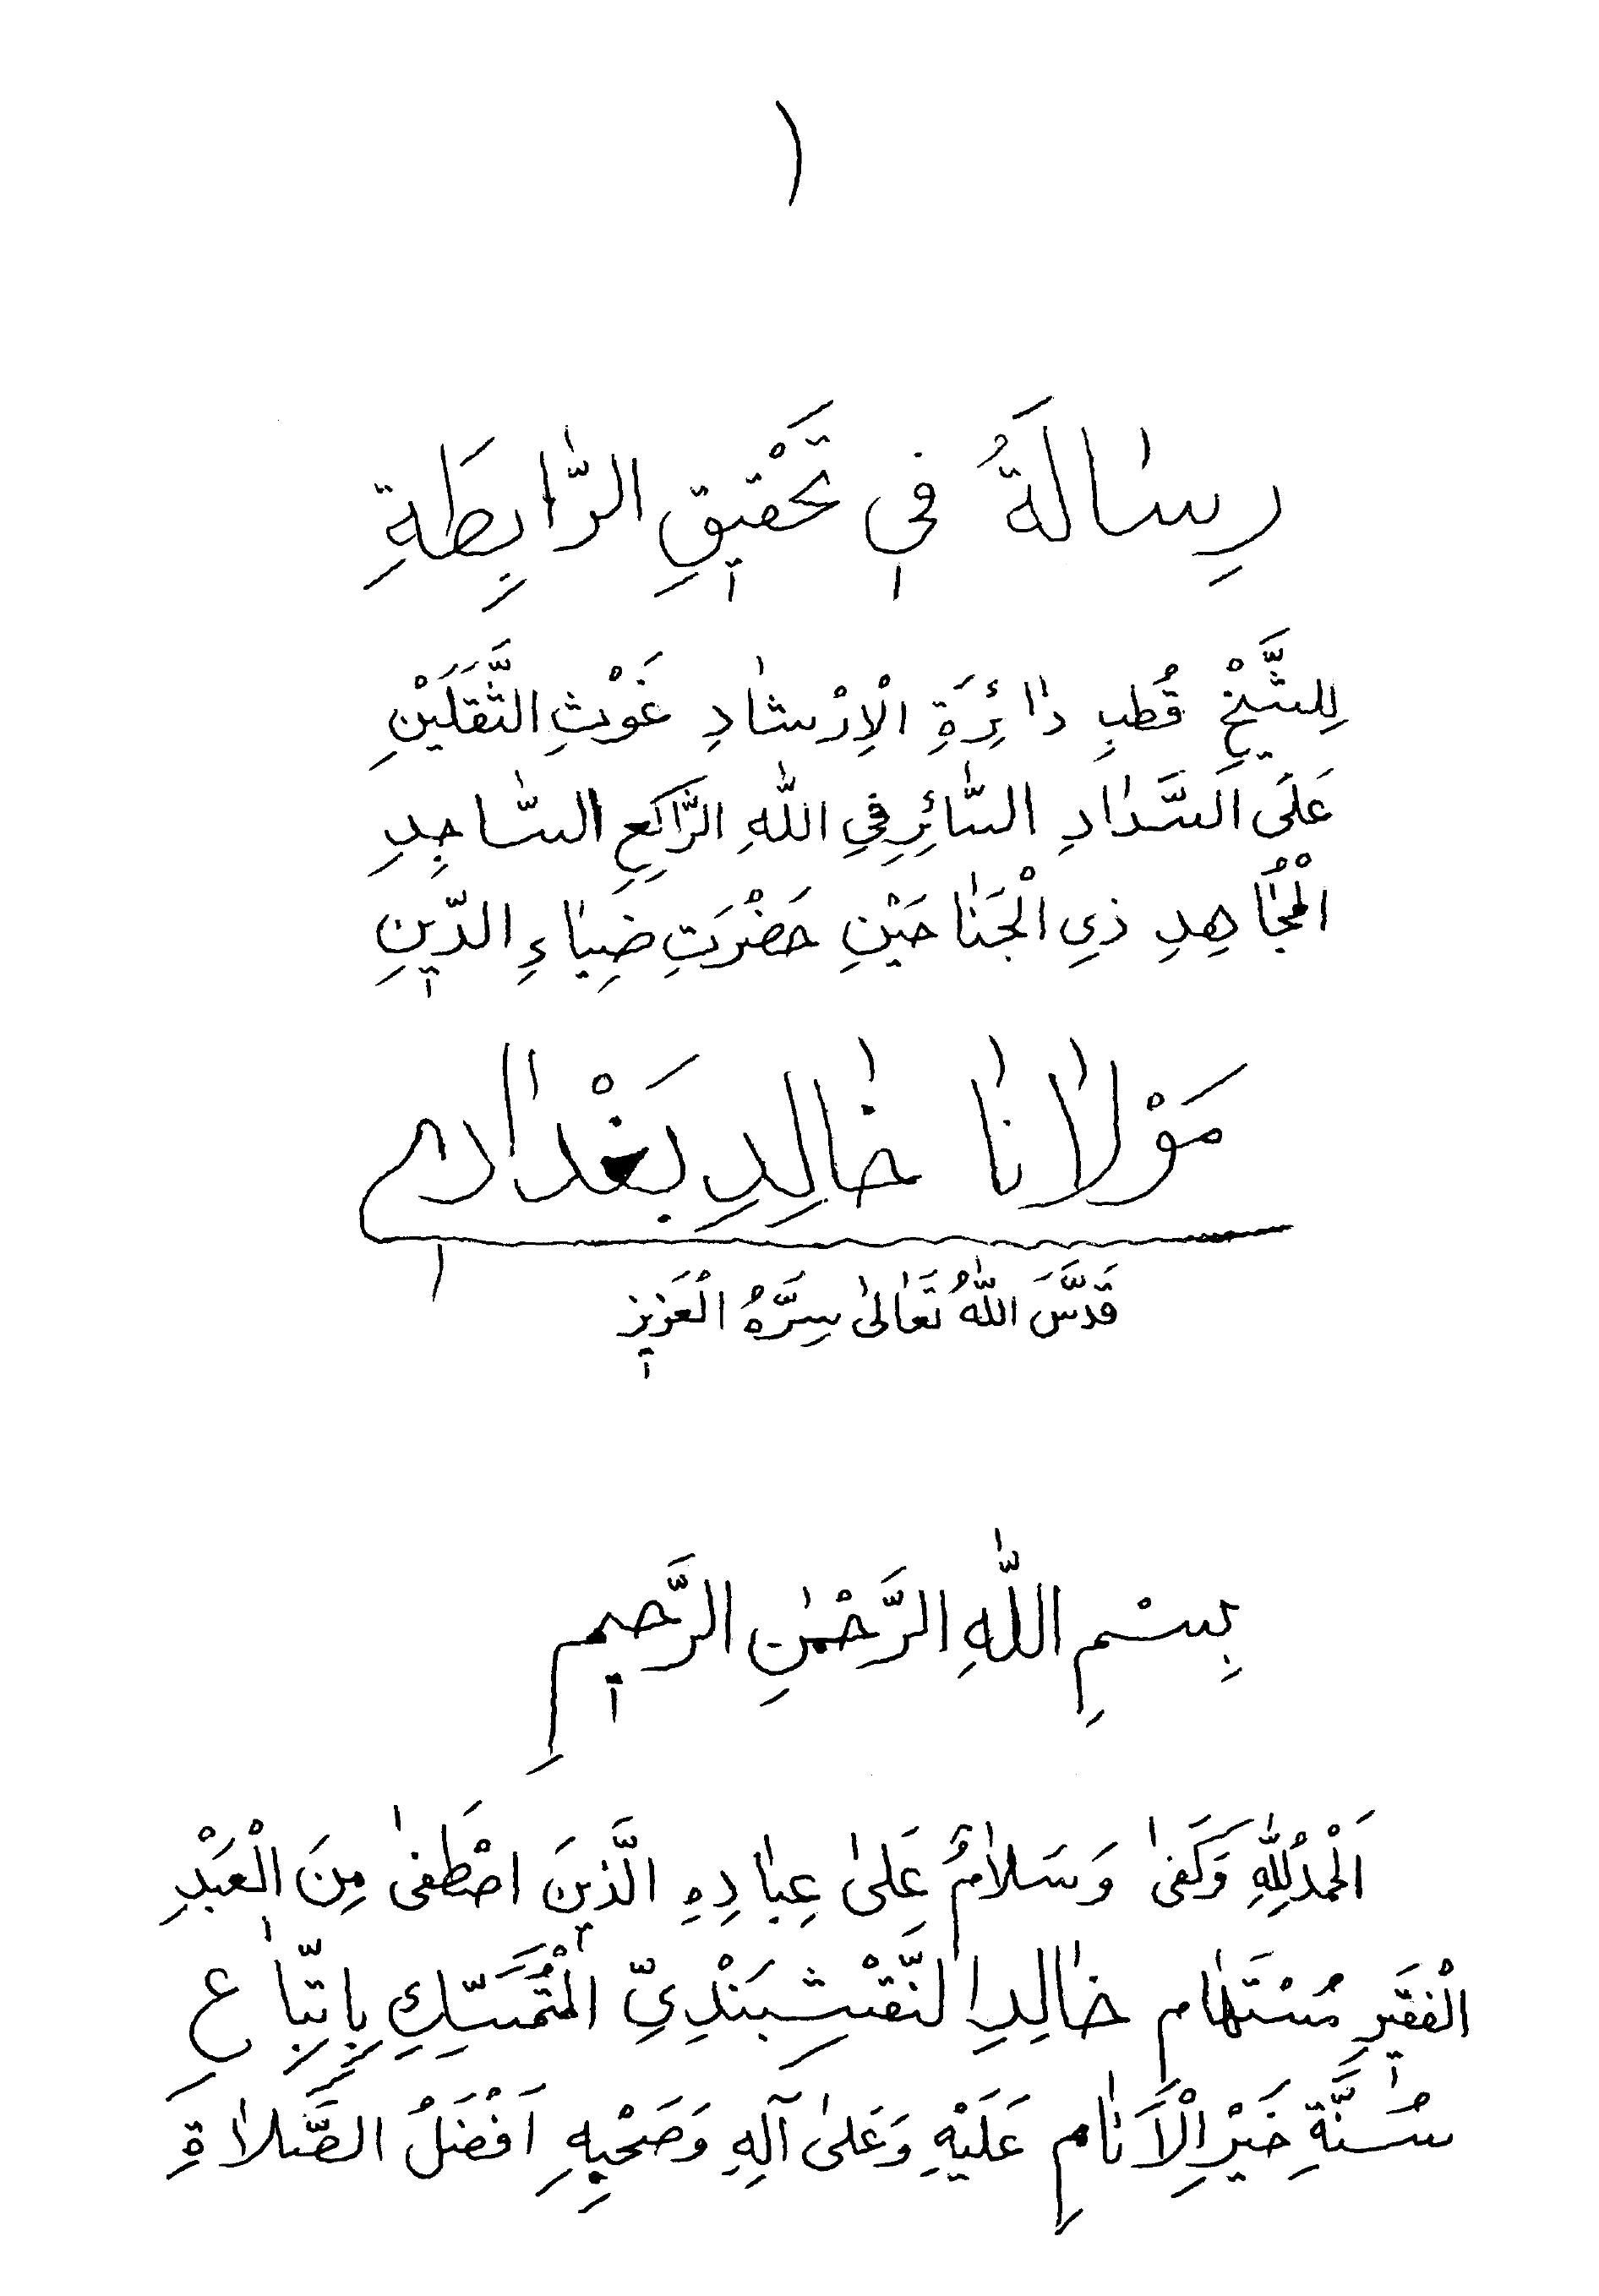 ١
رِسَالَةُ فِي تَحْقِيقِ الرَّابِطَةِ
لِلشَّيْخِ قُطبِ دَائِرَةِ الْاِرْشَادِ غَوْثِ الثَّقَلَيْنِ
عَلَى السَّدَادِ السَّائِرِ فِي اللّٰهِ الرَّاكِعِ السَّاجِدِ
الْمُجَاهِدِ ذِي الْجَنَاحَيْنِ حَضْرَتِ ضِيَاءِ الدِّينِ
مَوْلَانَا خَالِدِ بَغْدَادِي
قَدَّسَ اللّٰهُ تَعَالٰى سِرَّهُ الْعَزِيز
بِسْمِ اللّٰهِ الرَّحْمٰنِ الرَّحِيمِ
اَلْحَمْدُ لِلّٰهِ وَكَفٰى وَسَلَامٌ عَلٰى عِبَادِهِ الَّذِينَ اصْطَفٰى مِنَ الْعَبْدِ
الْفَقِيرِ مُسْتَهَام خَالِدِ النَّقْشِبَنْدِىِّ الْمُتَمَسِّكِ بِاِتِّبَاعِ
سُنَّةِ خَيْرِ الْاَنَامِ عَلَيْهِ وَعَلٰى آلِهِ وَصَحْبِهِ اَفْضَلُ الصَّلَاةِ